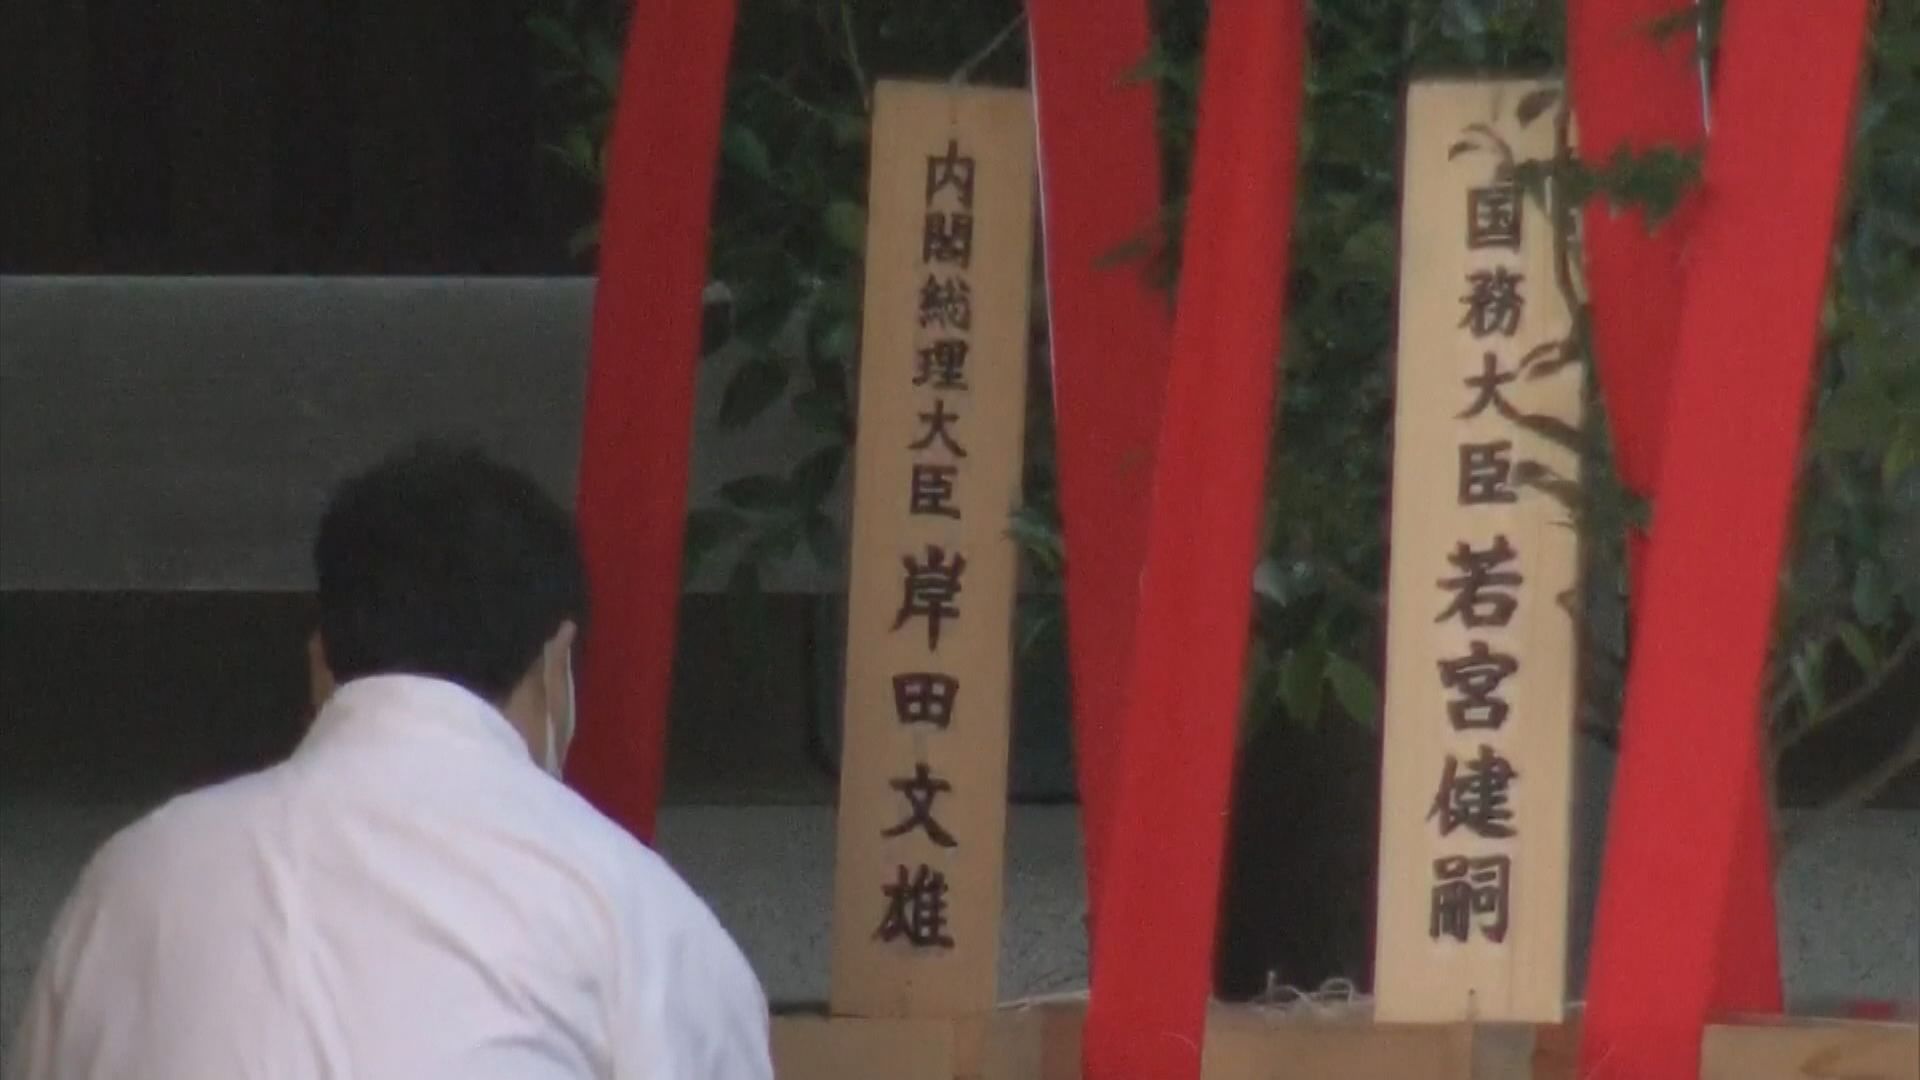 内閣総理大臣 岸田文雄
国務大臣 若宮健嗣